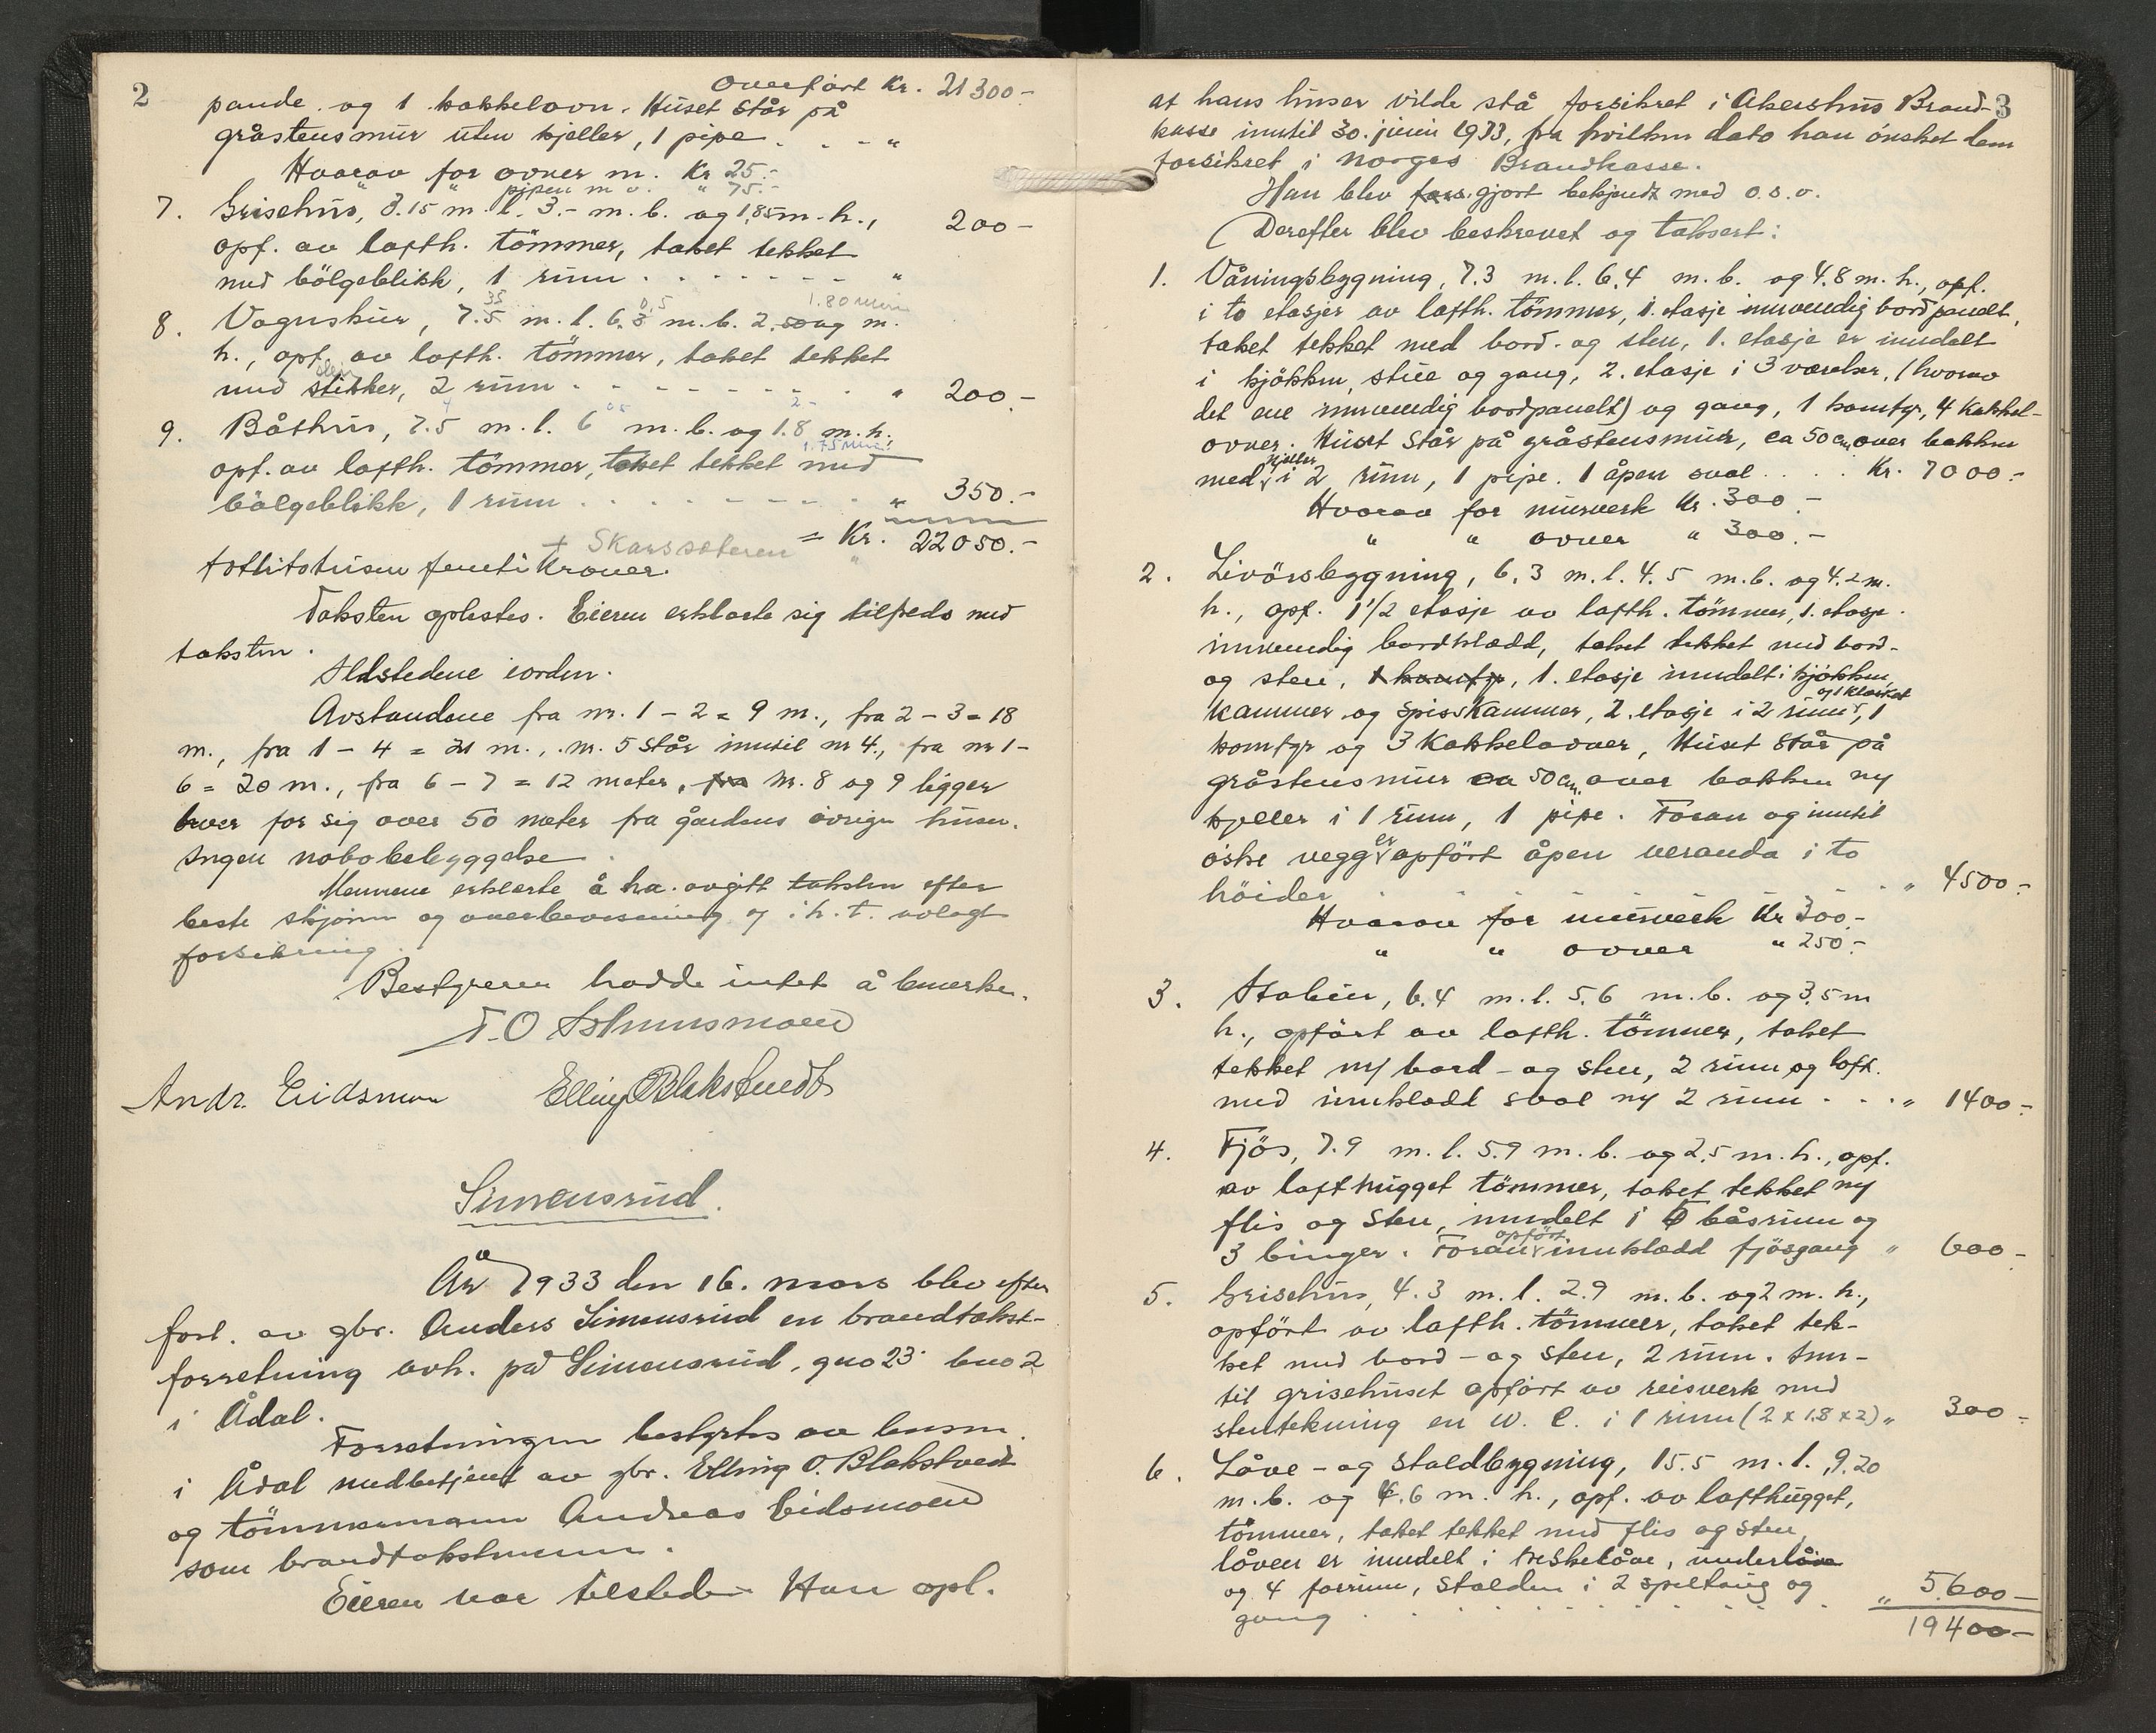 2
Overført Kr. 21300.-
pande og 1 kakkelovn. Huset står på
gråstensmur uten kjeller, 1 pipe . . - "
Hvorav for ovner m. Kr 25.-
" " pipen m v. " 75.-
7. Grisehus, 3.15 m. l. 3.- m. b. og 1,85 m. h., 200-
opf. av lafth. tömmer, taket tekket
med bölgeblikk, 1 rum . . . . . . . "
35 0.5 1.80
8. Vognskur, 7.5 m. l. 6.3 m. b. 2.50 og m.
h., opf. av lafth. tömmer, taket tekket
sten
med stikker, 2 rum - - - - - - - " 200.-
9. Båthus, 7.5 m. l. 6 m. b. og 1.8 m. h.
opf. av lafth. tömmer, taket tekket med
bölgeblikk, 1 rum . . . . . . . . " 350.-
+ Skarssæteren = Kr. 22050.-
tottitotusen femti Kroner.
Taksten oplestes. Eieren erklærte sig tilfreds med
taksten.
Ildstedene iorden.
Avstandene fra nr. 1 - 2 = 9 m., fra 2 - 3 = 18
m., fra 1 - 4 = 21 m., nr. 5 står inntil nr 4., fra nr 1 -
6 = 20 m., fra 6 - 7 = 12 meter, fra Nr. 8 og 9 ligger
hver for sig over 50 meter fra gårdens övrige huser.
Ingen nabobebyggelse.
Mennene erklærte å ha avgitt taksten efter
beste skjönn og overbevisning og i h. t. avlagt
forsikring.
Bestyreren hadde intet å bemerke.
T. O
Andr. Eidsmoen Elling O Blakstvedt
Simensrud.
År 1933 den 16. mars blev efter
forl. av gbr. Anders Simensrud en brandtakst-
forretning avh. på Simensrud, gno 23 bno 2
i Ådal.
Forretningen bestyrtes av lensm.
i Ådal medbetjent av gbr. Elling O. Blakstvedt
og tömmermann Andreas Eidsmoen
som brandtakstmenn.
Eieren var tilstede. Han opl.
3
at hans huser vilde stå forsikret i Akershus Brand-
kasse inntil 30. juni 1933, fra hvilken dato han önsket dem
forsikret i Norges Brandkasse.
Han blev fors. gjort bekjendt med o.s.v.
Derefter blev beskrevet og taksert:
1. Våningsbygning, 7.3 m. l. 6.4 m. b. og 4.8 m. h., opf.
i to etasjer av lafth. tömmer, 1. etasje innvendig bordpanelt,
taket tekket med bord- og sten, 1. etasje er inndelt
i kjökken, stue og gang, 2. etasje i 3 værelser, (hvorav
det ene innvendig bordpanelt) og gang, 1 komfyr, 4 kakkel-
ovner. Huset står på gråstensmur, ca 50 cm over bakken
kjeller
med i 2 rum, 1 pipe. 1 åpen sval . . . . Kr. 7000.-
Hvorav for murverk Kr. 300.-
" " ovner " 300.-
2. Livörsbygning, 6.3 m. l. 4.5 m. b. og 4.2 m.
h., opf. 1 1/2 etasje av lafth. tömmer, 1. etasje
innvendig bordklædd, taket tekket med bord-
og sten, 1 komfyr, 1. etasje inndelt i kjökken,
og 1 klosket
kammer og spisskammer, 2. etasje i 2 rum, 1
komfyr og 3 kakkelovner, Huset står på
gråstensmur ca 50 cm. over bakken m/
kjeller i 1 rum, 1 pipe. Foran og inntil
er
östre vegg opfört åpen veranda i to
höider . - - - - - - - " 4500.-
Hvorav for murverk Kr 300.-
" " ovner " 250.-
3. Stabur, 6.4 m. l. 5.6 m. b. og 3.5 m
h., opfört av lafth. tömmer, taket
tekket m/ bord- og sten, 2 rum og loft.
med innklædt sval m/ 2 rum . . . " 1400.-
4. Fjös, 7.9 m. l. 5.9 m. b. og 2.5 m. h., opf.
av lafthugget tömmer, taket tekket m/
flis og sten, inndelt i 6 båsrum og
opfört
3 binger. Foran innklædd fjösgang " 600-
5. Grisehus, 4.3 m. l. 2.9 m. b. og 2 m. h.,
opfört av lafth. tömmer, taket tek-
ket med bord- og sten, 2 rum. Inn-
til grisehuset opfört av reisverk med
stentekning en W. C. i 1 rum (2 x 1.8 x 2) " 300.-
6. Låve- og staldbygning, 15.5 m. l. 9.20
m. b. og 4.6 m. h., opf. av lafthugget,
tömmer, taket tekket med flis og sten,
låven er inndelt i treskelåve, underlåve
og 4 forrum, stalden i 2 spiltaug og
gang . . . . . . . . . " 5600-
19400-